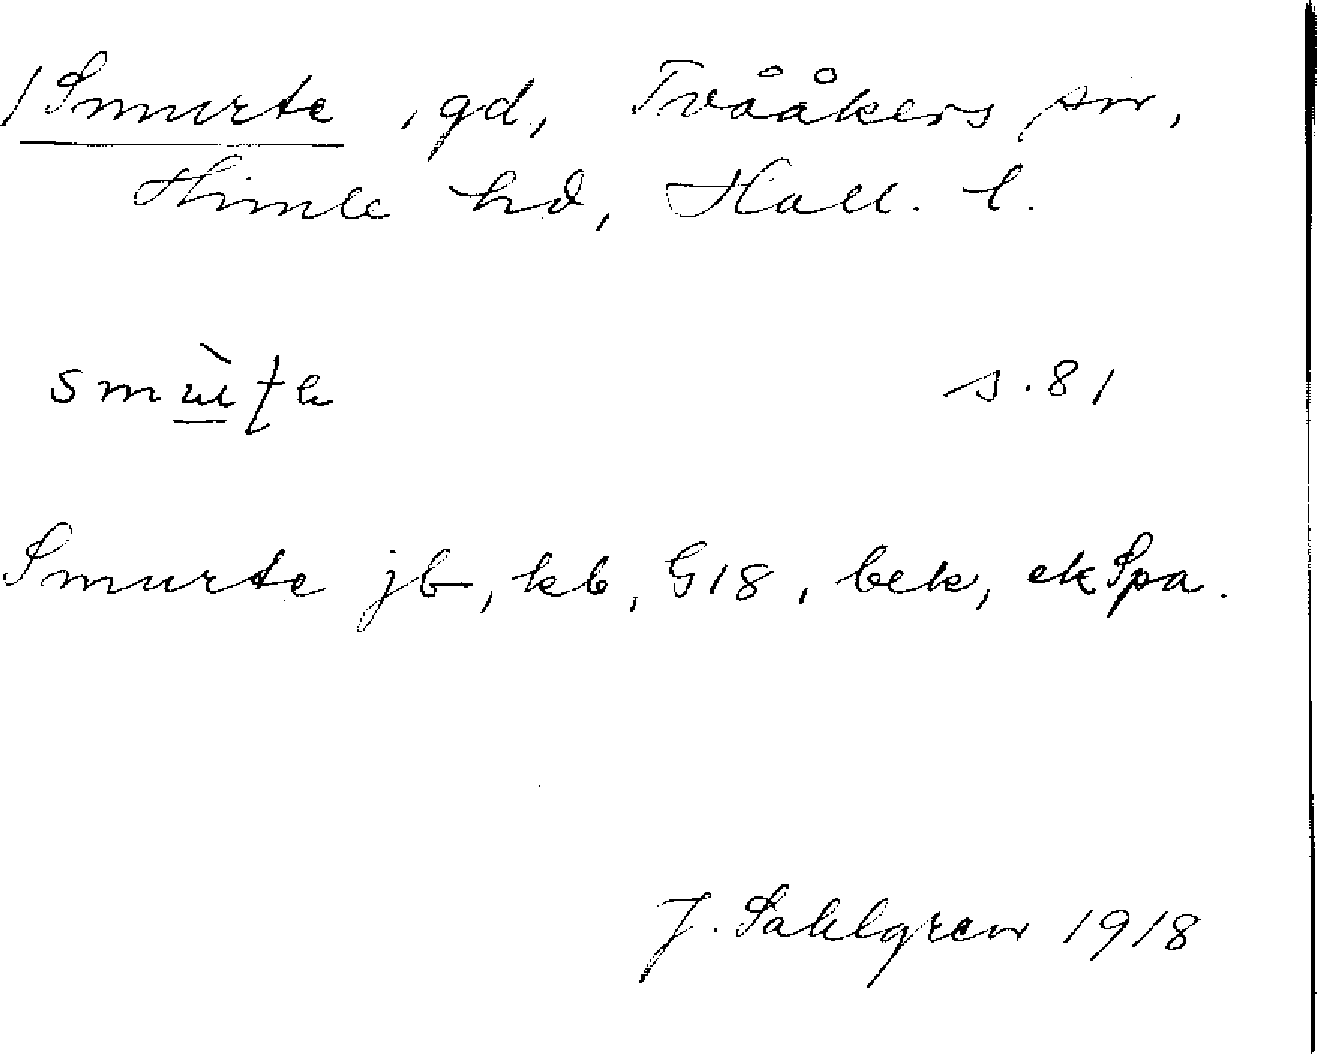 1 Smurte, gd, Tvååkers sn,
Himle hd, Hall. l.
s. 81
Smurte jb, kb, G18, bek, ekSpa.
J. Sahlgren 1918